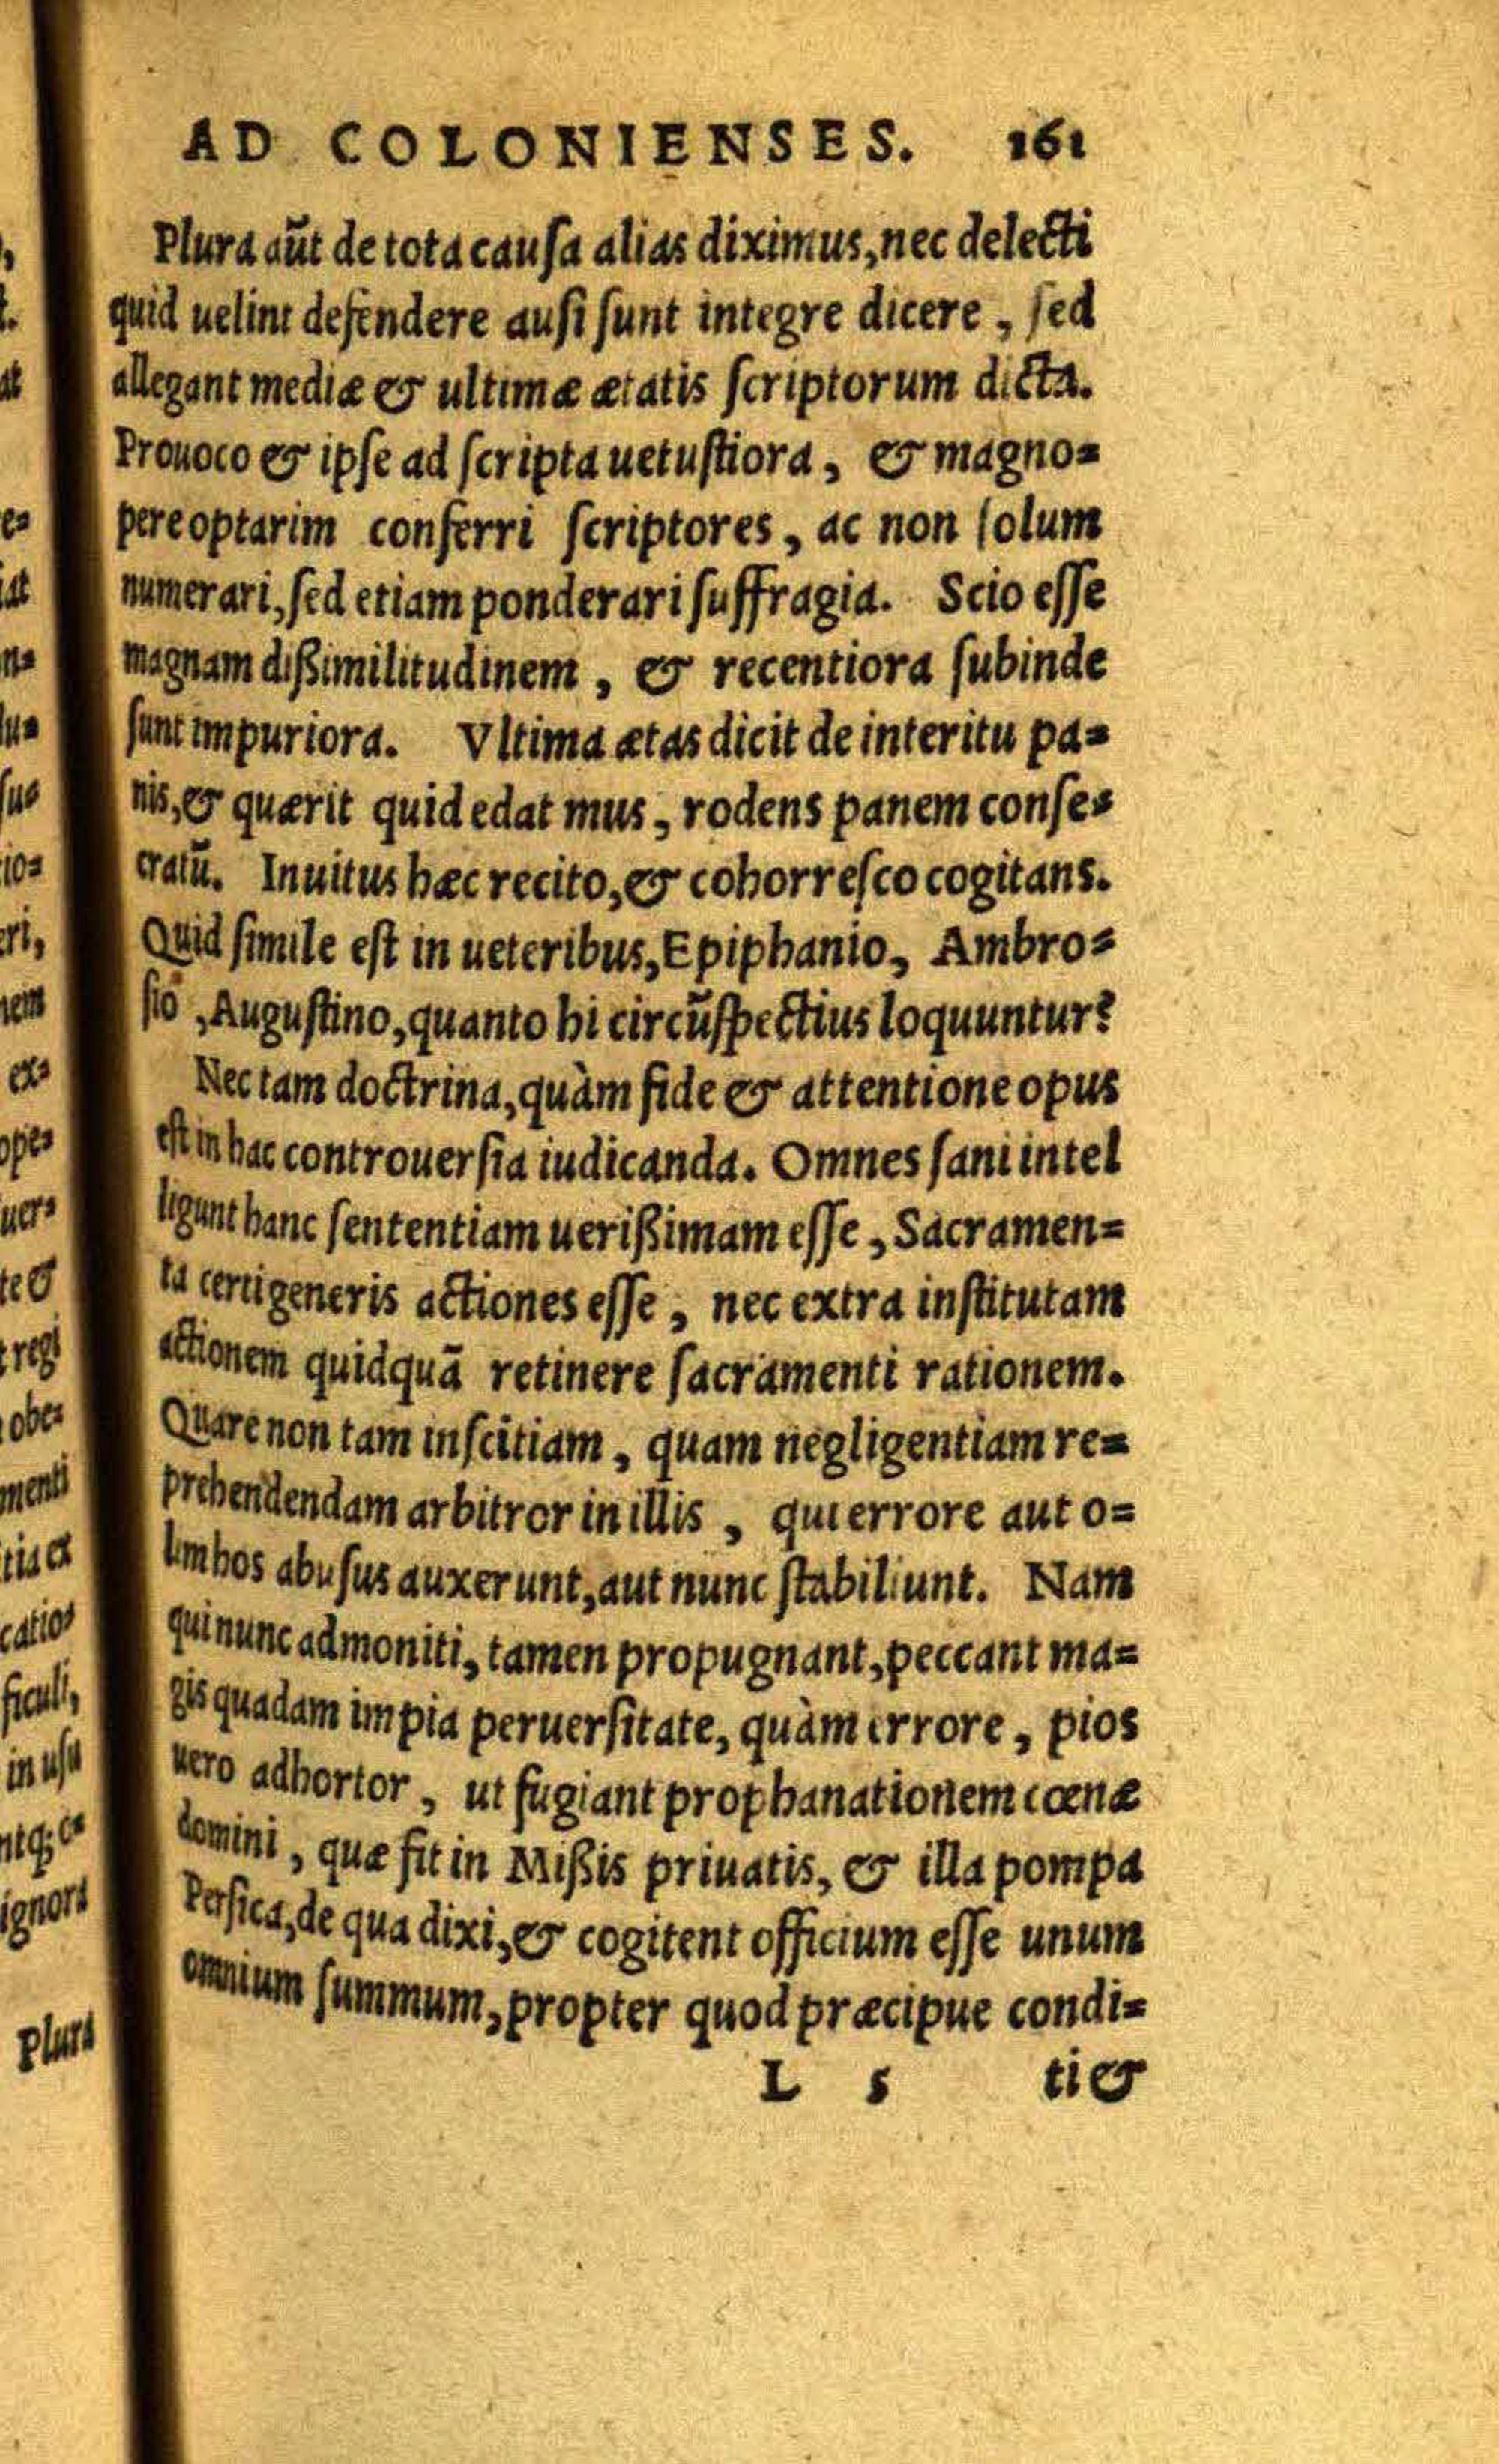 AD COLONIENSES. 161
Plura aũt de tota causa alias diximus, nec delecti
quid uelint defendere ausi sunt integre dicere, sed
allegant mediæ & ultimæ ætatis scriptorum dicta.
Prouoco & ipse ad scripta uetustiora, & magno=
pere optarim conferri scriptores, ac non solum
numerari, sed etiam ponderari suffragia. Scio esse
magnam dißimilitudinem, & recentiora subinde
sunt impuriora. Vltima ætas dicit de interitu pa=
nis, & quærit quid edat mus, rodens panem conse=
cratũ. Inuitus hæc recito, & cohorresco cogitans.
Quid simile est in ueteribus, Epiphanio, Ambro=
sio, Augustino, quanto hi circũspectius loquuntur?
Nec tam doctrina, quàm fide & attentione opus
est in hac controuersia iudicanda. Omnes sani intel
ligunt hanc sententiam uerißimam esse, Sacramen=
ta certi generis actiones esse, nec extra institutam
actionem quidquã retinere sacramenti rationem.
Quare non tam inscitiam, quam negligentiam re=
prehendendam arbitror in illis, qui errore aut o=
lim hos abusus auxerunt, aut nunc stabiliunt. Nam
qui nunc admoniti, tamen propugnant, peccant ma=
gis quadam impia peruersitate, quàm errore, pios
uero adhortor, ut fugiant prophanationem cœnæ
domini, quæ fit in Mißis priuatis, & illa pompa
Persica, de qua dixi, & cogitent officium esse unum
omnium summum, propter quod præcipue condi=
L 5 ti &